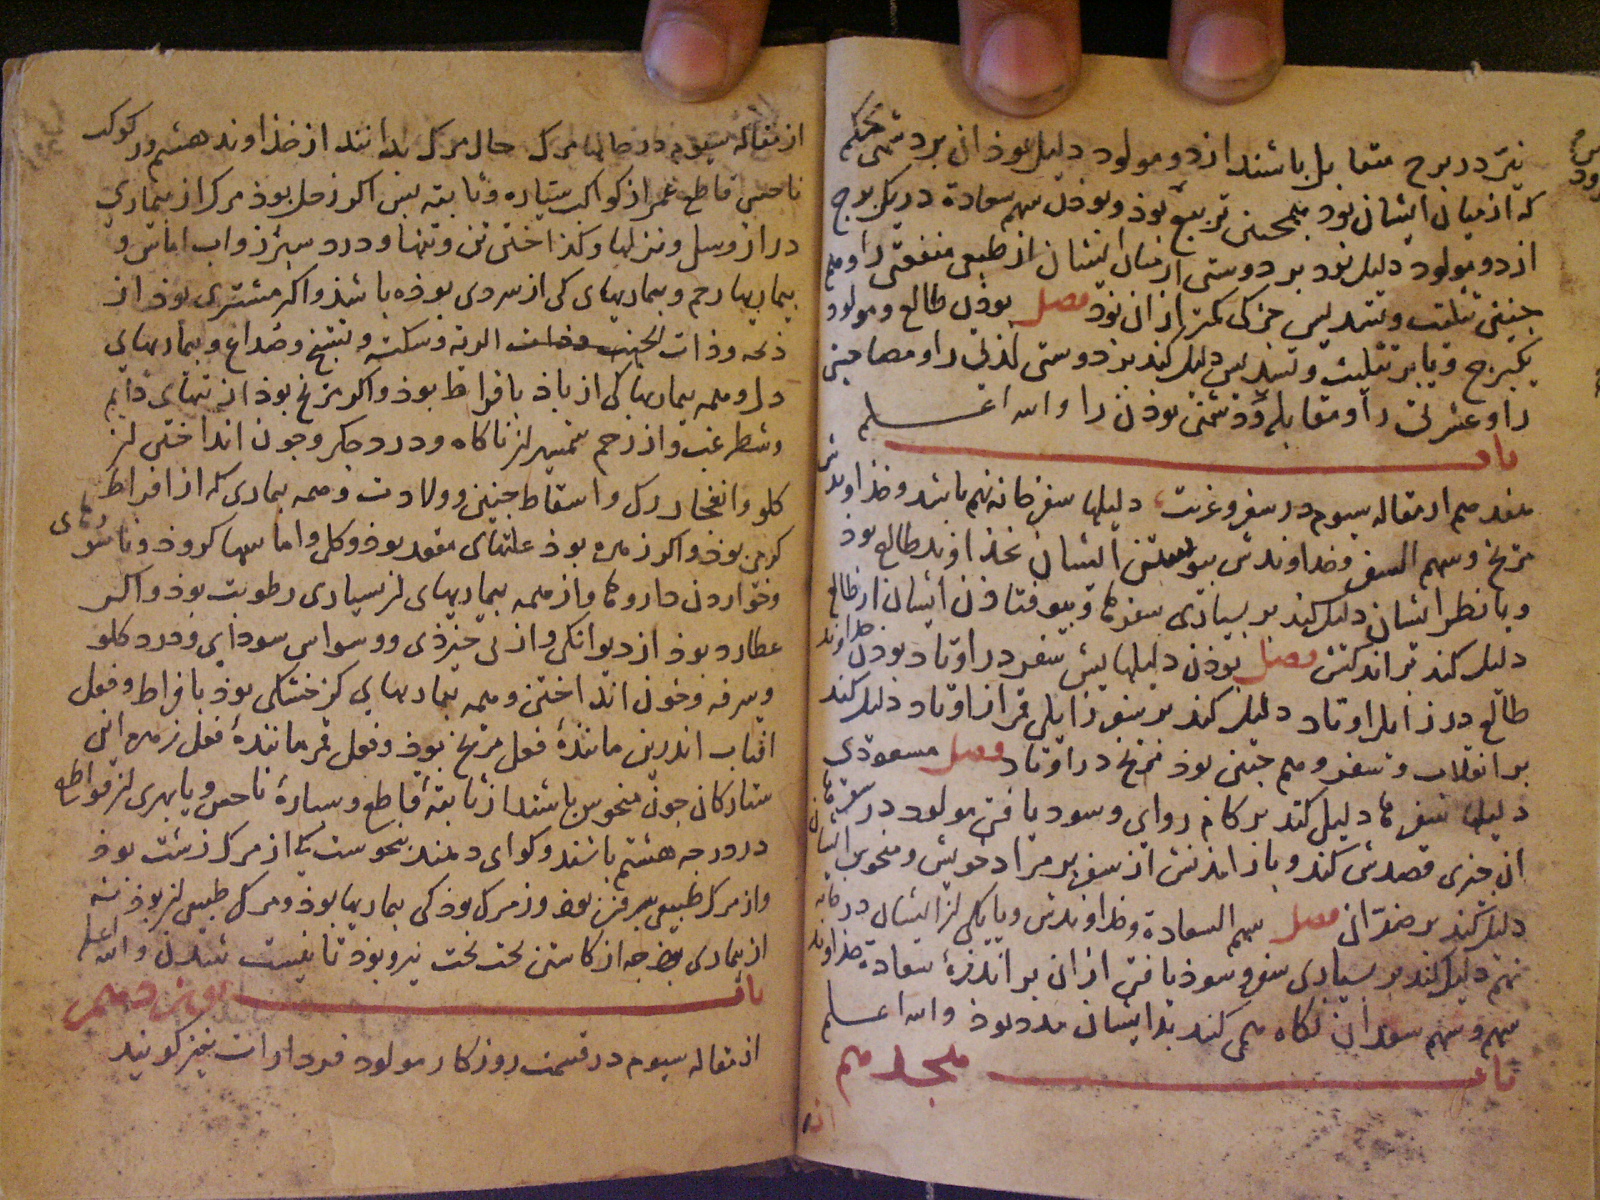 نیز در برج متقابل باشند از دو مولود دلیل بوذ ان بر دشمنی محکم
که از میان ایشان بود همچنین تربیع بوذ و بوذن سهم سعادة در یک برج
از دو مولود دلیل بوذ بر دوستی از میان ایشان از طبعی منفعتی را و هم
جنین تثلیث و تسدیس جز کی کمتر از ان بود فصل بوذن طالع و مولود
یکبرج و یا بر تثلیث و تسدیس دلیل کند بر دوستی لذتی را و مصاحبتی
را و عشرتی را و مقابله و دشمنی بوذن را و الله اعلم
باب
هفدهم از مقاله سیوم در سفر و غربت دلیلها سفر خانه نهم باشد و خذاوندش
مریخ و سهم السفر و خداوندش پیوستن ایشان بخذاوند طالع بوذ
و یا نظر ایشان دلیل کند بر بسیاری سفرها و بیوفتاذن ایشان از طالع
دلیل کند بر اندکش فصل بوذن دلیلهایش سفر در اوتاد بوذن خداوند
طالع در زایل اوتاد دلیل کند بر سفر زایلی قمر از اوتاد دلیل کند
بر انقلاب و سفر و هم جنین بوذ مریخ در اوتاد فصل مسعودی
دلیلها سفرها دلیل کند بر کام روای و سود یافتن مولود در سفرها
ان جیزی قصدش کند و باز امذنش از سفر بر مراد خویش و منحوس ایشان
دلیل کند بر ضد ان فصل سهم السعادة و خداوندش و یا یکی از ایشان در خانه
نهم دلیل کند بر بسیاری سفر و سوذ یافتن از ان بر اندازهٔ سعادة خذاوند
سهم و سهم سعد ان نگاه می کند بذایشان مدد بوذ و الله اعلم
باب هجدهم
از مقاله سیوم در حالها مرک حال مرک بدانند از خذاوند هشتم و در کوکب
ناحس قاطع عمر از کواکب سیاره و ثابته بس اکر زحل بوذ مرک از بیماری
دراز و سل و نزلها و کذاختن تن و تبها و درد سپرز و اب اماس و
بیماریها رحم و بیماریهای کی از سردی بوذه باشذ و اکر مشتری بوذ از
ذبحه و ذات الجنب و ذات الریه و سکته و تشنج و صداع و بیماریهای
دل و همه بیماریها کی از باذ بافراط بوذ و اکر مریخ بوذ از تبهای دایم
و شطر غب و از زخم شمشیر از ناکاه و درد جکر و خون انداختن از
کلو و انفجار رک و اسقاط جنین و ولادت و همه بیماری که از افراط
کرمی بوذ و اکر زهره بوذ علتهای مقعد بوذ و کل و اماسها کروذ و ناسورهای
و خواردن داروها و از همه بیماریهای از بسیاری رطوبت بوذ و اکر
عطارد بوذ از دیوانکی و از بی خیرذی و وسواس سوذای و درد کلو
و سرفه و خون انداختن و همه بیماریهایی کز خشکی بوذ بافراط و فعل
افتاب اندرین مانندهٔ فعل مریخ بوذ و فعل قمر مانندهٔ فعل زهره این
ستارکان جون منحوس باشند از ثابتهٔ قاطع و سیارهٔ ناحس و یا بهری از قواطع
در درجه هشتم باشند و کوای دهند بنحوست یکی از مرک زشت بوذ
و از مرک طبیعی بیرون بوذ و ز مرک بوذ کی بیماریها بوذ و مرک طبیعی از بوذ نه
از بیماری جه از کاستن لخت لخت نیرو بوذ تا نیست شدن و الله اعلم
باب نوزدهم
از مقاله سیوم در قسمت روزکار مولود فردارات نیز کویند